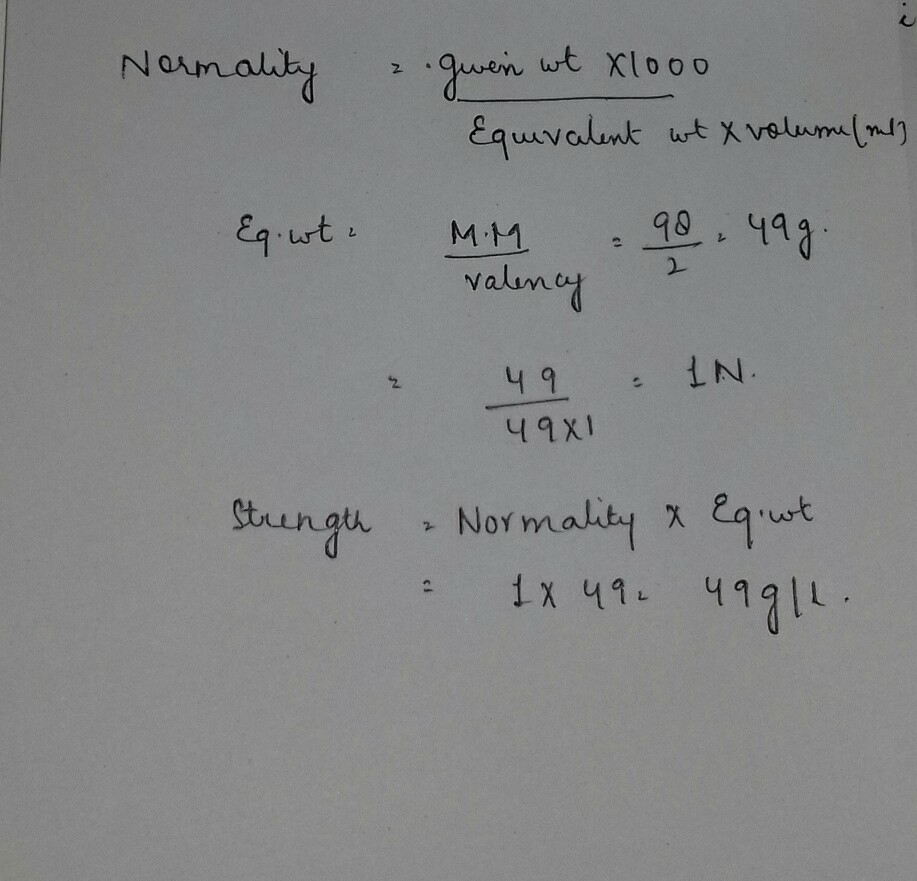 i
Normality = given wt X1000
Equivalent wt X volume(ml)
Eq.wt = M.M = 98 = 49g.
valency 2
= 49 = 1N.
49X1
Strength = Normality x Eq.wt
= 1X 49 = 49g/L.